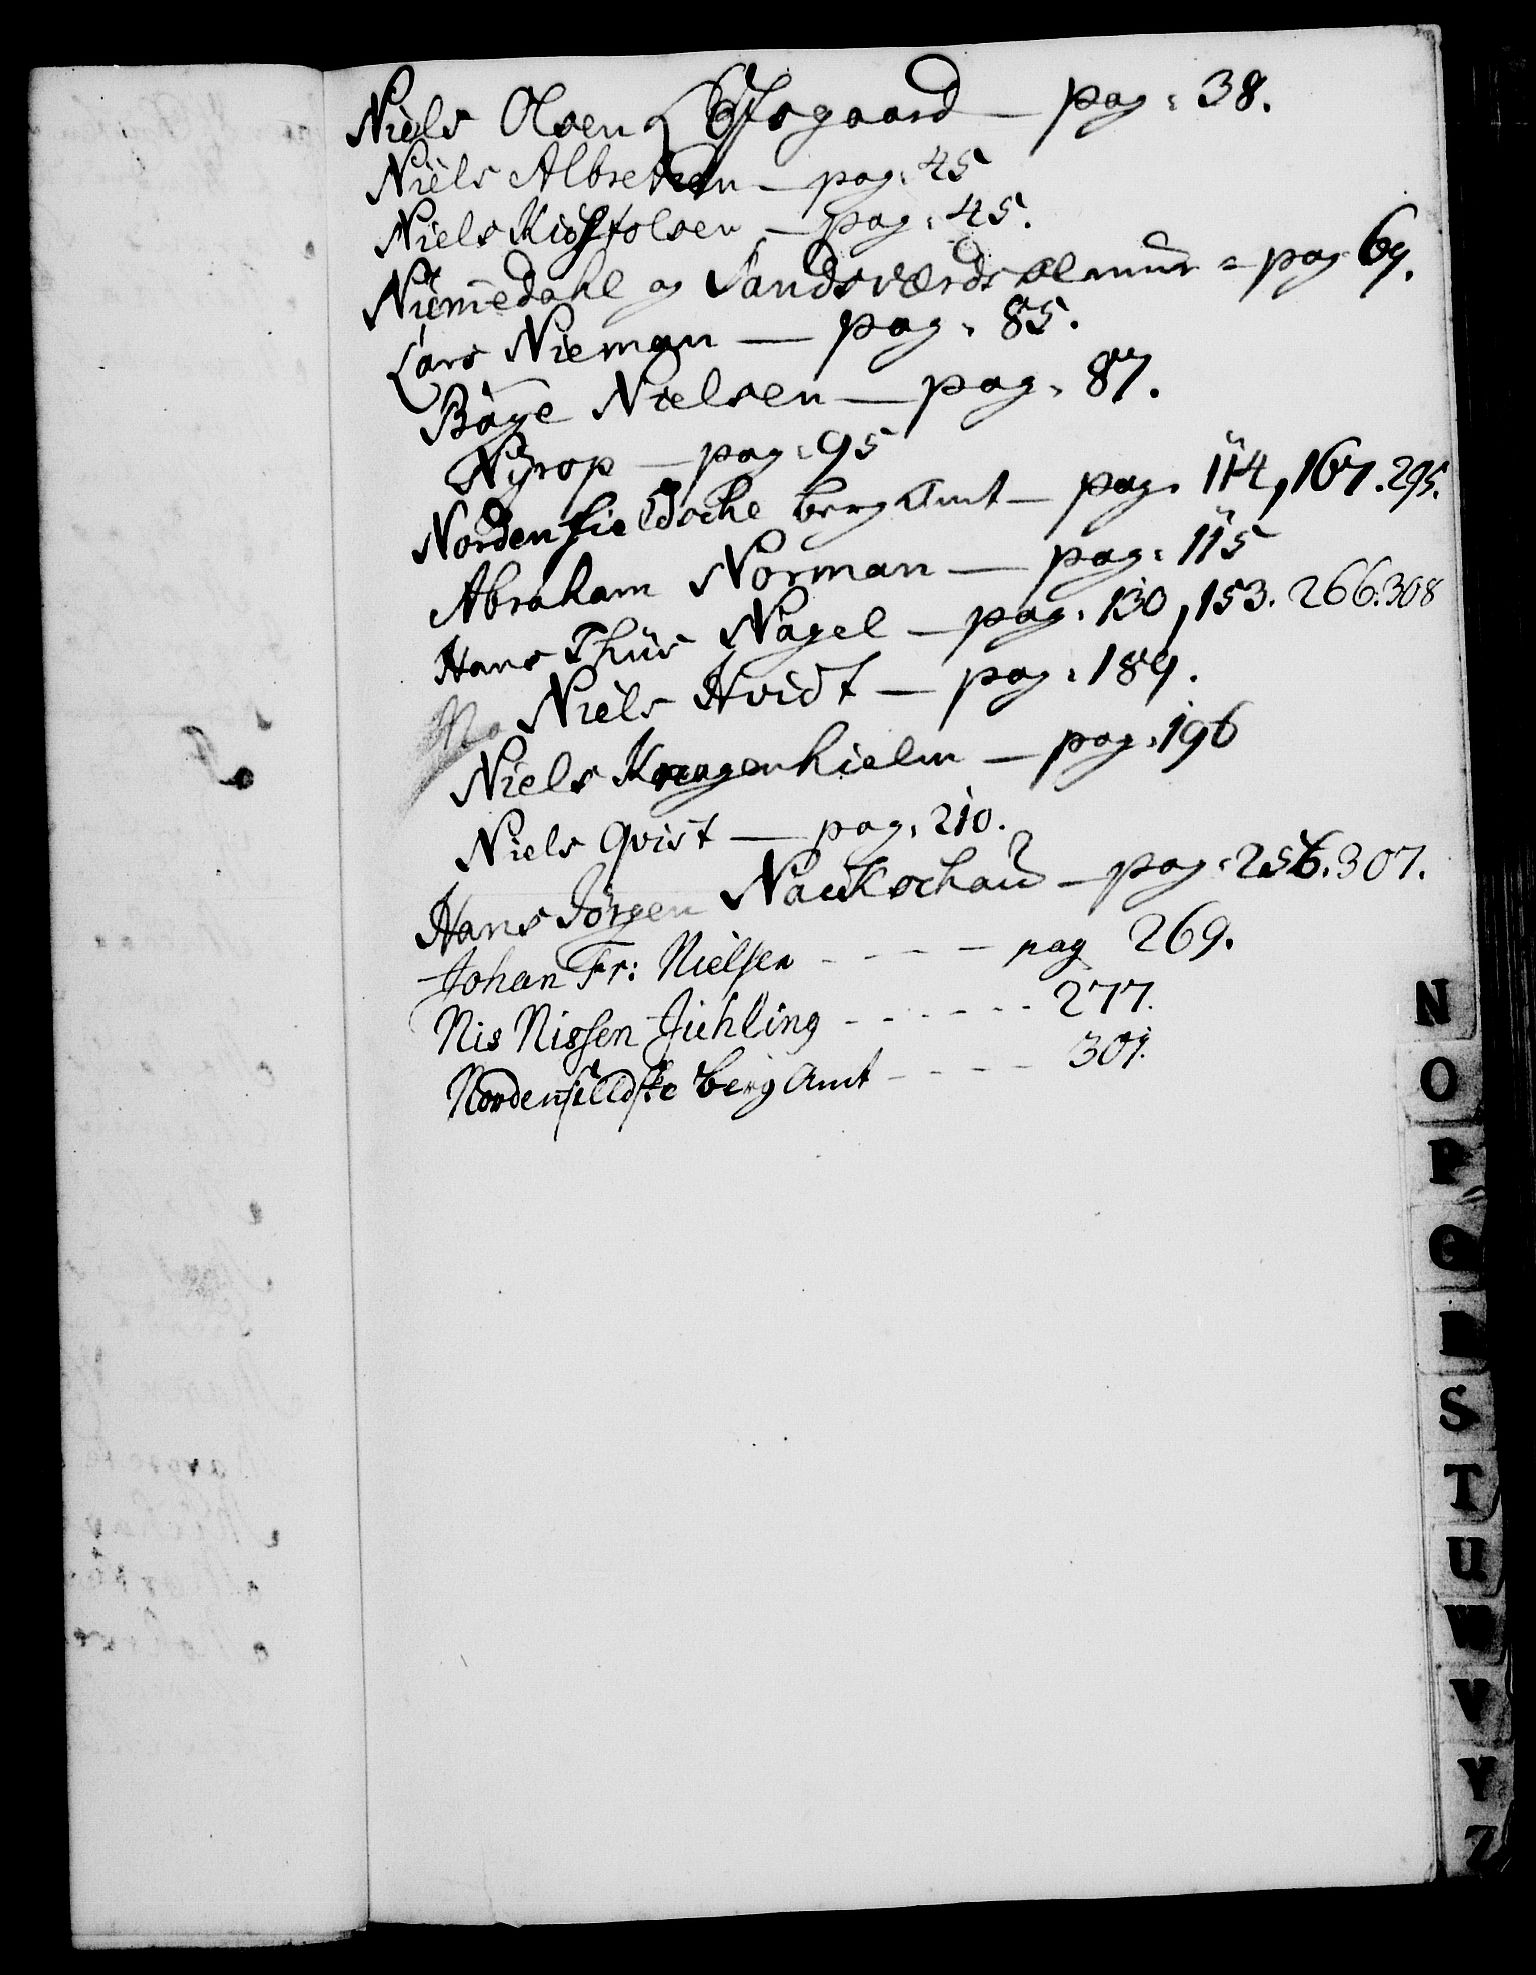 Niels Olsen Løfsgaard — pag: 38.
Niels Albretsen — pag: 45
Niels Kiøstolsen — pag: 45.
Nümedahl og Sandsværds almue - pag 69.
Lars Nieman — pag: 85.
Bøye Nielsen — pag: 87.
Nÿrop — pag: 95
Nordenfieldsche bergAmt — pag: 114, 167. 295.
Abraham Norman — pag: 115
Hans Thüs Nagel — pag: 130, 153. 266. 308
No Niels Hvidt — pag: 189.
Niels Kragenhielm — pag: 196
Niels Qvist — pag: 210.
Hans Jörgen Naukschau — pag: 256. 307.
Johan Fr: Nielsen - - - - pag 269.
Nis Nissen Jichling - - - - - - 277.
Nordenfieldske berg Amt - - - - 307.
N
O
P
Q
R
S
T
U
W
V
Y
Z